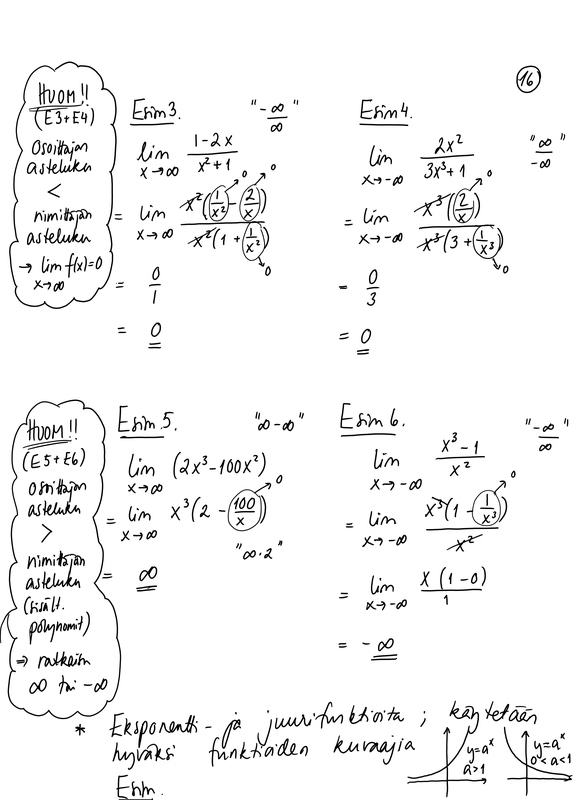 16
HUOM!!
(E3+E4)
Osoittajan
asteluku
<
nimittäjän
asteluku
→ lim f(x)=0
x→∞
Esim 3.
"-∞/∞"
lim x→∞ (1-2x)/(x²+1)
= lim x→∞ x²(1/x² - 2/x) / x²(1 + 1/x²)
→0 →0
→0
= 0/1
= 0
Esim 4.
"∞/-∞"
lim x→-∞ 2x²/(3x³+1)
= lim x→-∞ x³(2/x) / x³(3 + 1/x³)
→0
→0
= 0/3
= 0
HUOM!!
(E5+E6)
Osoittajan
asteluku
>
nimittäjän
asteluku
(sisält.
polynomit)
⇒ ratkaisu
∞ tai -∞
Esim. 5.
"∞-∞"
lim x→∞ (2x³-100x²)
= lim x→∞ x³(2 - 100/x)
→0
"∞·2"
= ∞
Esim 6.
"-∞/∞"
lim x→-∞ (x³-1)/x²
= lim x→-∞ x³(1 - 1/x³) / x²
→0
= lim x→-∞ x(1-0)/1
= -∞
* Eksponentti- ja juurifunktioita; käytetään
hyväksi funktioiden kuvaajia
y=aˣ
a>1
y=aˣ
0<a<1
Esim.